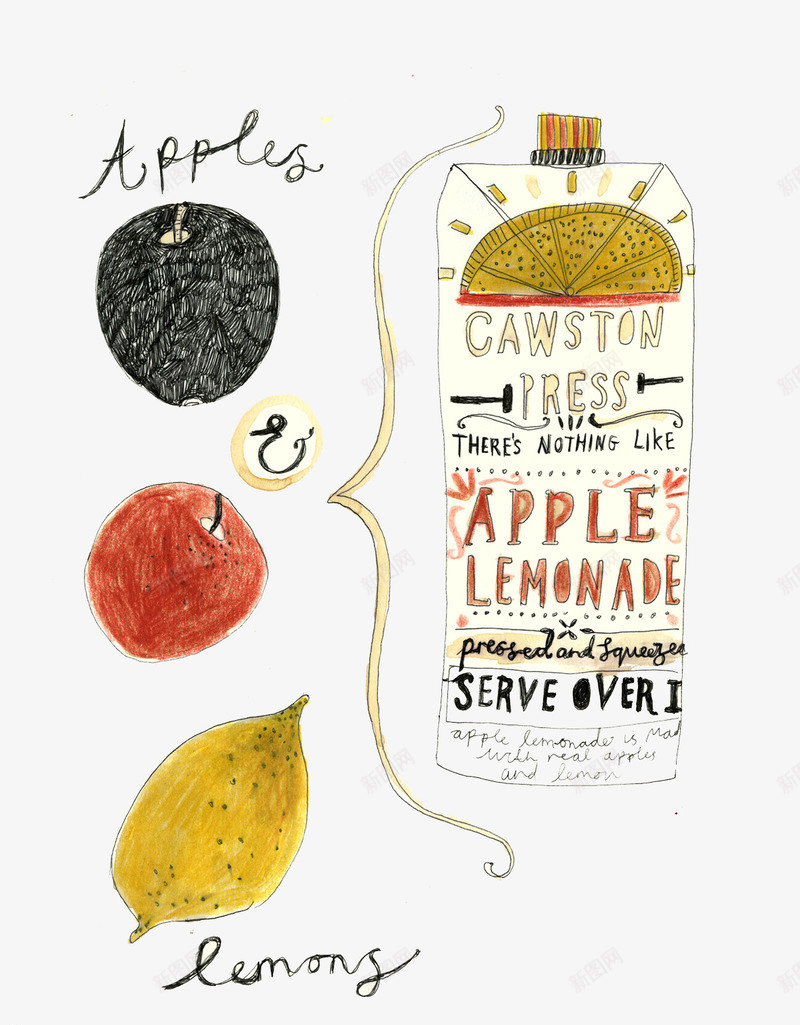 Apples
&
lemons
CAWSTON
PRESS
THERE'S NOTHING LIKE
APPLE
LEMONADE
pressed and squeezed
SERVE OVER I
apple lemonade is mad
with real apples
and lemon
新图网